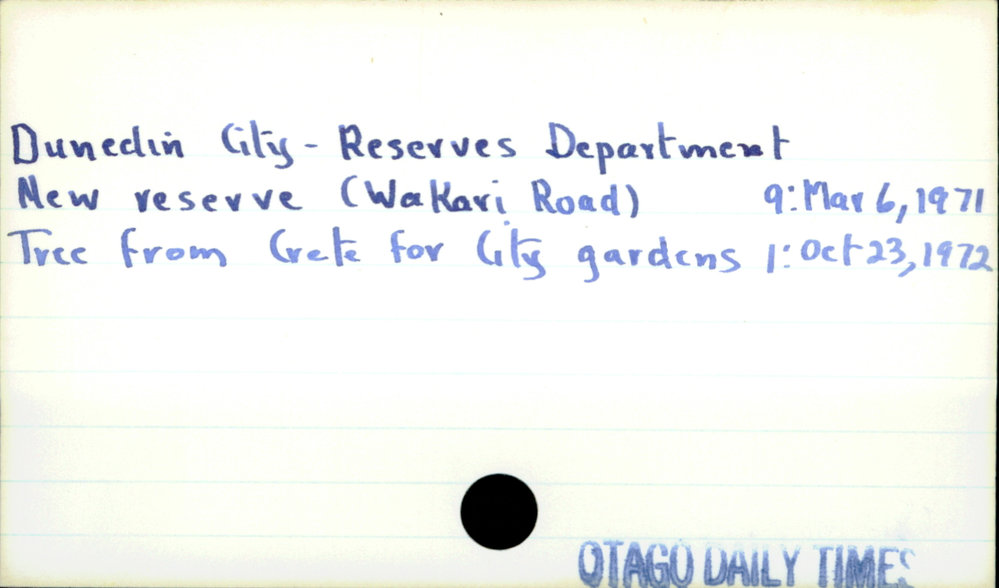 Dunedin City - Reserves Department
New reserve (Wakari Road) 9: Mar 6, 1971
Tree from Crete for City gardens 1: Oct 23, 1972
OTAGO DAILY TIMES